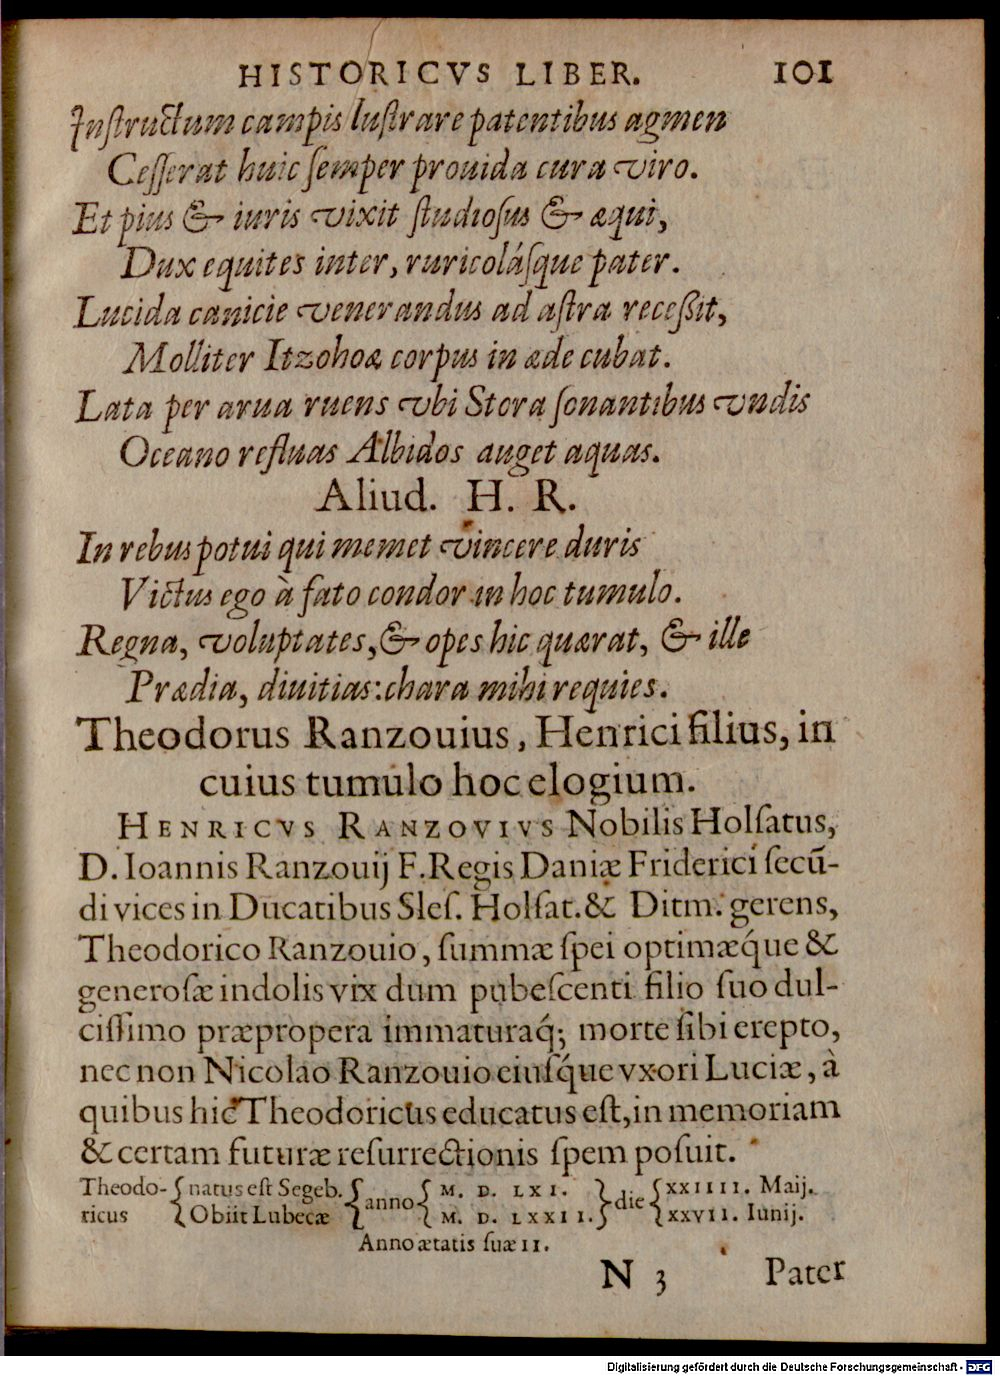 HISTORICVS LIBER. 101
Jnſtructum campis luſtrare patentibus agmen
Ceſſerat huic ſemper prouida cura viro.
Et pius & iuris vixit ſtudioſus & æqui,
Dux equites inter, ruricoláſque pater.
Lucida canicie venerandus ad aſtra receßit,
Molliter Itzohoæ corpus in æde cubat.
Lata per arua ruens vbi Stora ſonantibus vndis
Oceano refluas Albidos auget aquas.
Aliud. H. R.
In rebus potui qui memet vincere duris
Victus ego à fato condor in hoc tumulo.
Regna, voluptates, & opes hic quærat, & ille
Prædia, diuitias: chara mihi requies.
Theodorus Ranzouius, Henrici filius, in
cuius tumulo hoc elogium.
HENRICVS RANZOVIVS Nobilis Holſatus,
D. Ioannis Ranzouij F. Regis Daniæ Friderici ſecũ-
di vices in Ducatibus Sleſ. Holſat. & Ditm. gerens,
Theodorico Ranzouio, ſummæ ſpei optimæq́ue &
generoſæ indolis vix dum pubeſcenti filio ſuo dul-
ciſſimo præpropera immaturaq́; morte ſibi erepto,
nec non Nicolao Ranzouio eiuſq́ue vxori Luciæ, à
quibus hic Theodoricus educatus eſt, in memoriam
& certam futuræ reſurrectionis ſpem poſuit.
Theodo- { natus eſt Segeb. { anno { M. D. LXI. } die { XXIIII. Maij.
ricus { Obiit Lubecæ { M. D. LXXII. } { XXVII. Iunij.
Anno ætatis ſuæ 11.
N 3 Pater
Digitalisierung gefördert durch die Deutsche Forschungsgemeinschaft - DFG